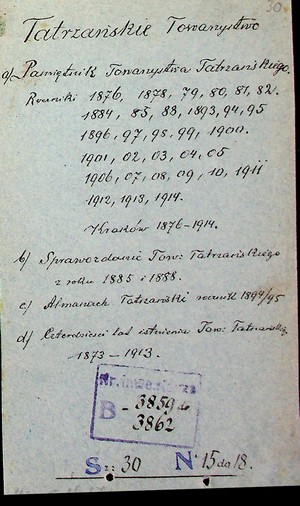 30.
Tatrzańskie Towarzystwo
a) Pamiętnik Towarzystwa Tatrzańskiego.
Roczniki 1876, 1878, 79, 80, 81, 82.
1884, 85, 88, 1893, 94, 95
1896, 97, 98, 99, 1900.
1901, 02, 03, 04, 05
1906, 07, 08, 09, 10, 1911
1912, 1913, 1914.
Kraków 1876-1914.
b) Sprawozdanie Tow: Tatrzańskiego
z roku 1885 i 1888.
c) Almanach Tatrzański rocznik 1894/95
d) Czterdzieści lat istnienia Tow: Tatrzańskiego
1873 - 1913.
Nr. inwentarza
B - 3859 do
3862
S : 30 N 15 do 18.